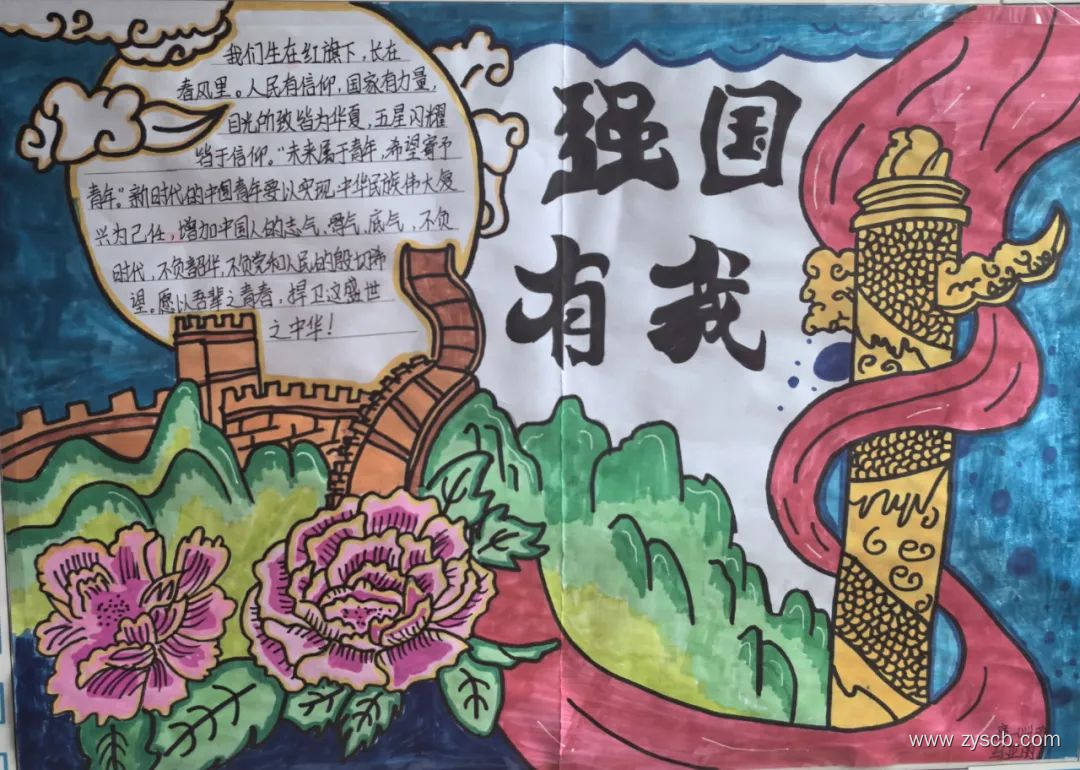 我们生在红旗下，长在
春风里。人民有信仰，国家有力量，
目光所致皆为华夏，五星闪耀
皆于信仰。“未来属于青年，希望寄予
青年”。新时代的中国青年要以实现中华民族伟大复
兴为己任，增加中国人的志气、骨气、底气，不负
时代，不负韶华，不负党和人民的殷切希
望。愿以吾辈之青春，捍卫这盛世
之中华！
强国
有我
www zyscb.com